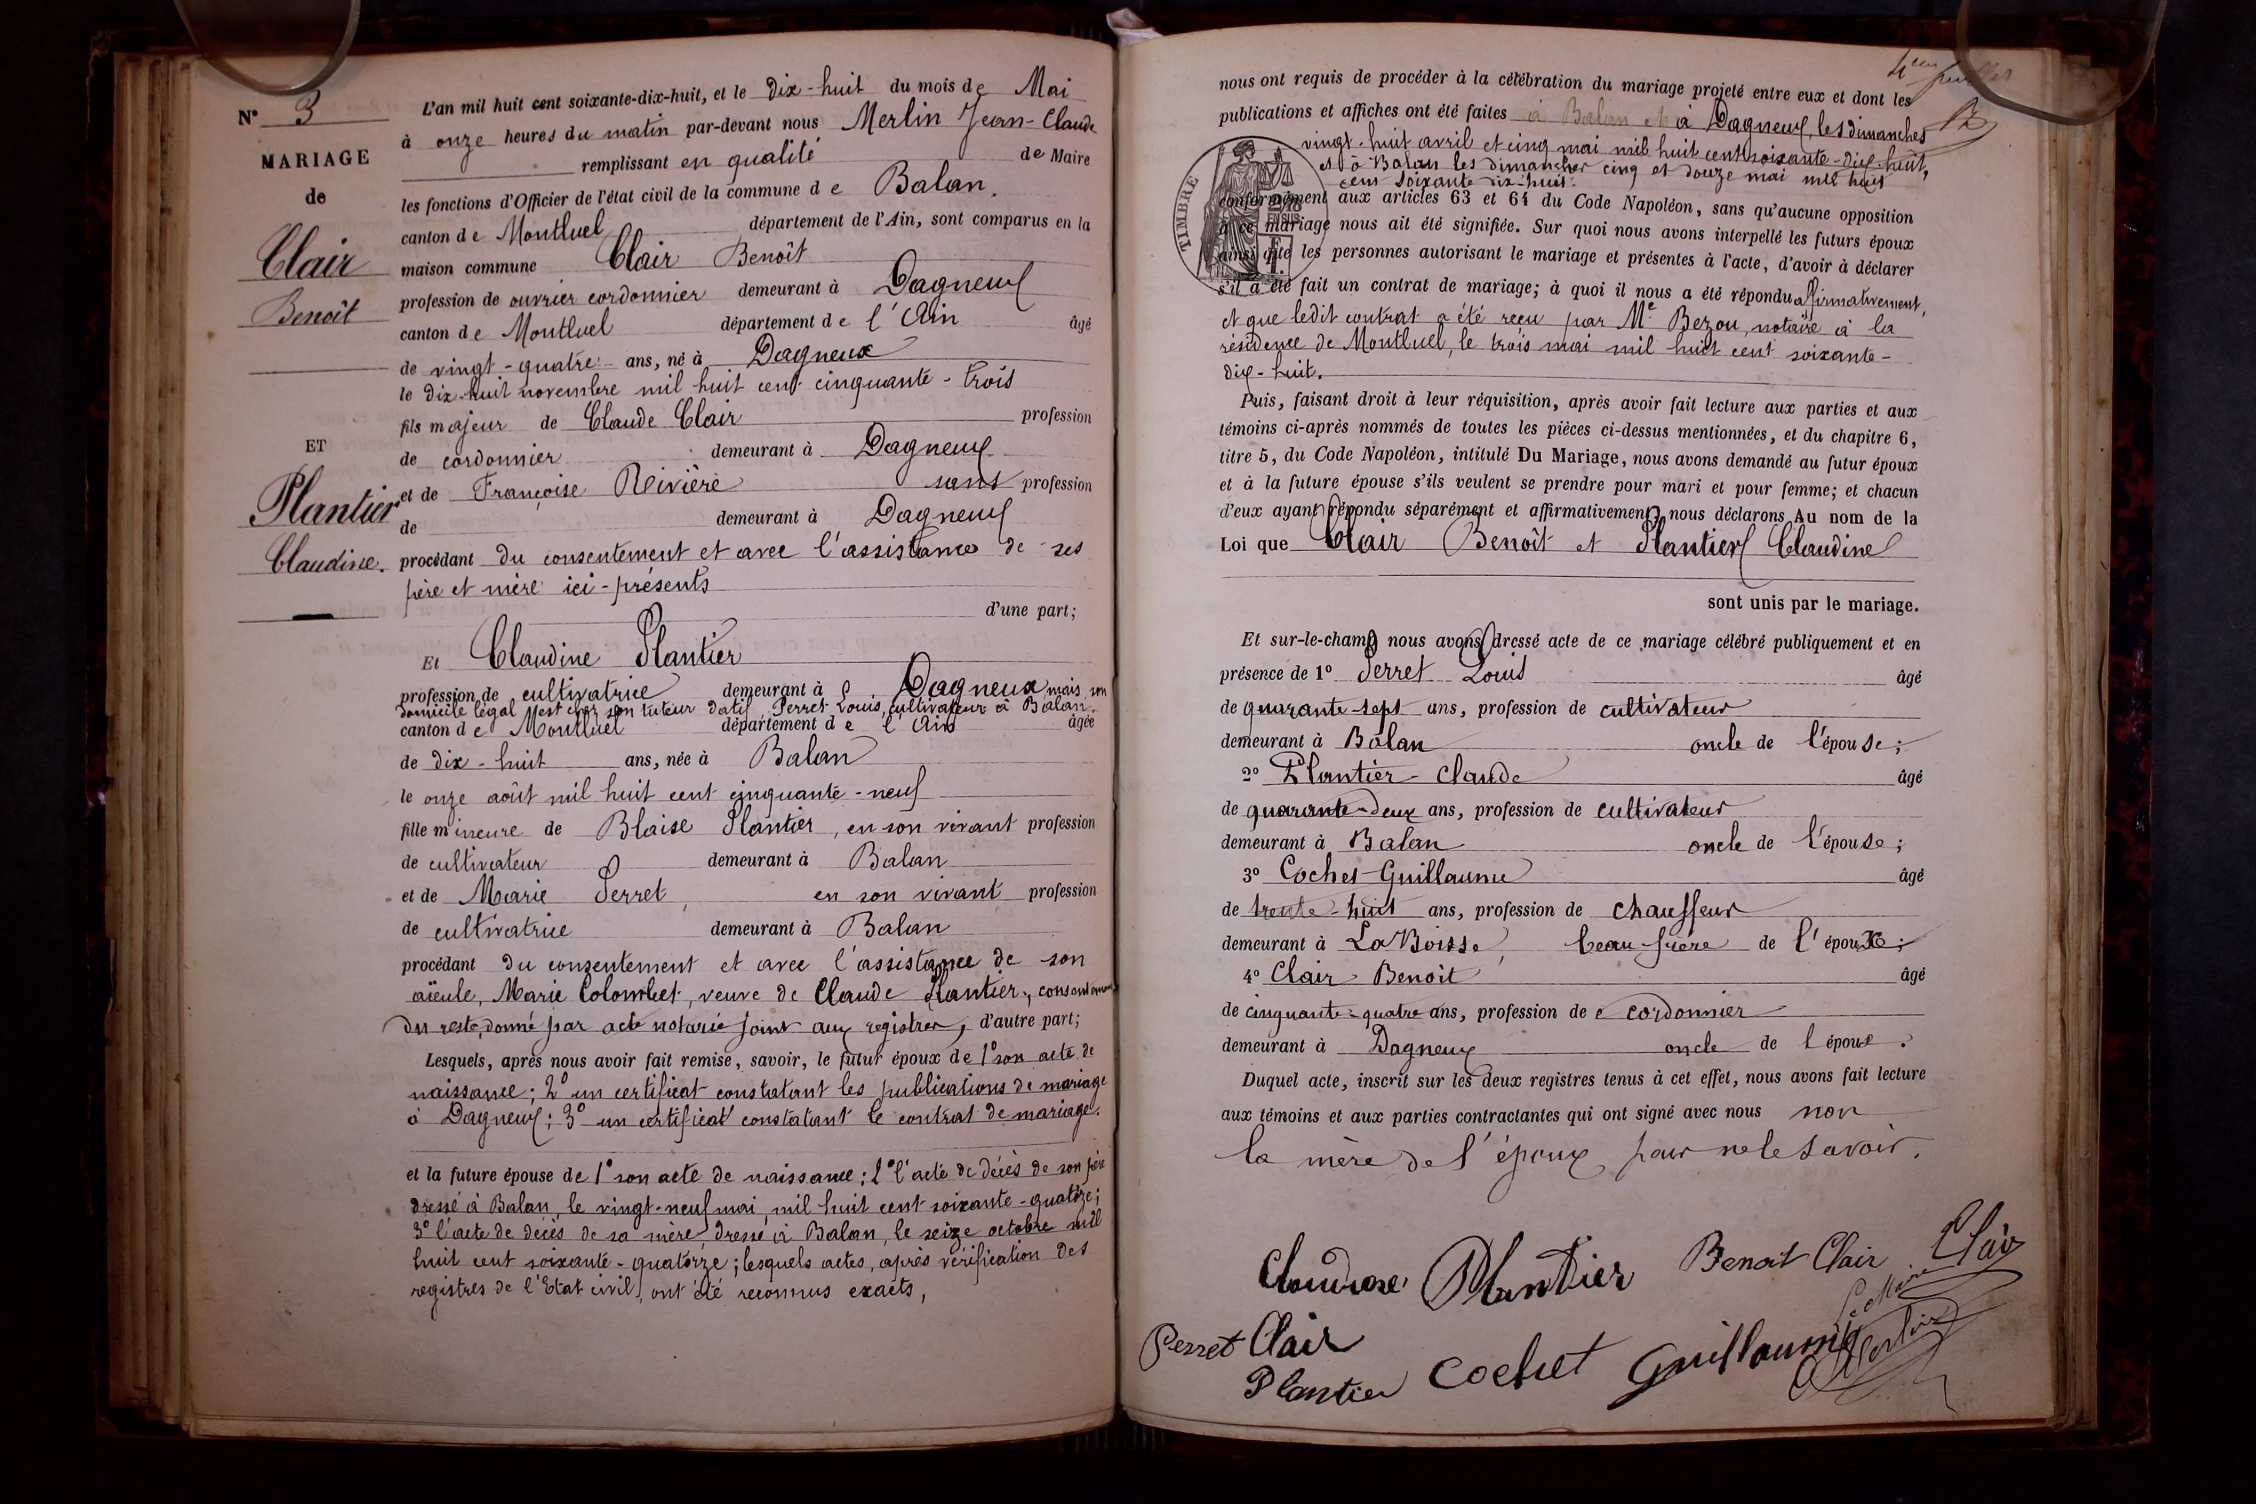 N° 3
MARIAGE
de
Clair
Benoît
ET
Plantier
Claudine.
L'an mil huit cent soixante-dix-huit, et le dix-huit du mois de Mai
à onze heures du matin par-devant nous Merlin Jean-Claude
remplissant en qualité de Maire
les fonctions d'Officier de l'état civil de la commune de Balan.
canton de Montluel département de l'Ain, sont comparus en la
maison commune Clair Benoît
profession de ouvrier cordonnier demeurant à Dagneux
canton de Montluel département de l'Ain âgé
de vingt-quatre ans, né à Dagneux
le dix-huit novembre mil huit cent cinquante-trois
fils majeur de Claude Clair profession
de cordonnier demeurant à Dagneux
et de Françoise Rivière sans profession
de demeurant à Dagneux
procédant du consentement et avec l'assistance de ses
père et mère ici-présents
d'une part;
Et Claudine Plantier
profession de cultivatrice demeurant à Dagneux mais son
domicile légal est chez son tuteur datif Perret Louis, cultivateur à Balan.
canton de Montluel département de l'Ain âgée
de dix-huit ans, née à Balan
le onze août mil huit cent cinquante-neuf
fille mineure de Blaise Plantier, en son vivant profession
de cultivateur demeurant à Balan
et de Marie Perret, en son vivant profession
de cultivatrice demeurant à Balan
procédant du consentement et avec l'assistance de son
aïeule, Marie Colombet, veuve de Claude Plantier, consentement
du reste, donné par acte notarié joint aux registres, d'autre part;
Lesquels, après nous avoir fait remise, savoir, le futur époux de 1° son acte de
naissance; 2° un certificat constatant les publications de mariage
à Dagneux; 3° un certificat constatant le contrat de mariage.
et la future épouse de 1° son acte de naissance; 2° l'acte de décès de son père
dressé à Balan, le vingt-neuf mai, mil huit cent soixante-quatorze;
3° l'acte de décès de sa mère, dressé à Balan, le seize octobre mil
huit cent soixante-quatorze; lesquels actes, après vérification des
registres de l'Etat civil, ont été reconnus exacts,
feuillet
nous ont requis de procéder à la célébration du mariage projeté entre eux et dont les
publications et affiches ont été faites à Balan et à Dagneux, les dimanches
vingt-huit avril et cinq mai mil huit cent soixante-dix-huit,
et à Balan les dimanches cinq et douze mai mil huit
cent soixante dix-huit.
TIMBRE
conformément aux articles 63 et 64 du Code Napoléon, sans qu'aucune opposition
à ce mariage nous ait été signifiée. Sur quoi nous avons interpellé les futurs époux
ainsi que les personnes autorisant le mariage et présentes à l'acte, d'avoir à déclarer
s'il a été fait un contrat de mariage; à quoi il nous a été répondu affirmativement,
et que ledit contrat a été reçu par Me Bezou, notaire à la
résidence de Montluel, le trois mai mil huit cent soixante-
dix-huit.
Puis, faisant droit à leur réquisition, après avoir fait lecture aux parties et aux
témoins ci-après nommés de toutes les pièces ci-dessus mentionnées, et du chapitre 6,
titre 5, du Code Napoléon, intitulé Du Mariage, nous avons demandé au futur époux
et à la future épouse s'ils veulent se prendre pour mari et pour femme; et chacun
d'eux ayant répondu séparément et affirmativement, nous déclarons Au nom de la
Loi que Clair Benoît et Plantier Claudine
sont unis par le mariage.
Et sur-le-champ nous avons dressé acte de ce mariage célébré publiquement et en
présence de 1° Perret Louis âgé
de quarante-sept ans, profession de cultivateur
demeurant à Balan oncle de l'épouse;
2° Plantier Claude âgé
de quarante-deux ans, profession de cultivateur
demeurant à Balan oncle de l'épouse;
3° Cochet Guillaume âgé
de trente-huit ans, profession de chauffeur
demeurant à La Boisse, beau frère de l'époux;
4° Clair Benoît âgé
de cinquante-quatre ans, profession de cordonnier
demeurant à Dagneux oncle de l'époux.
Duquel acte, inscrit sur les deux registres tenus à cet effet, nous avons fait lecture
aux témoins et aux parties contractantes qui ont signé avec nous non
la mère de l'époux pour ne le savoir.
Claudine Plantier Benoit Clair Clair
Le Maire
Perret Clair
Plantier Cochet Guillaume Merlin